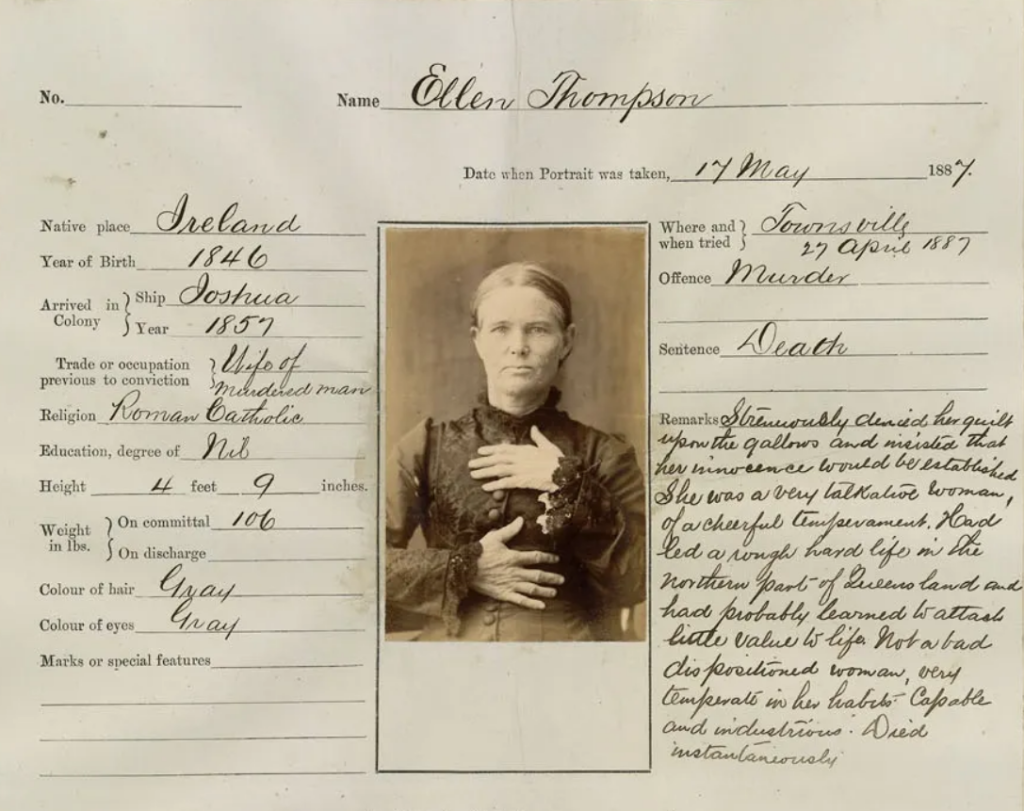 No.
Name Ellen Thompson
Date when Portrait was taken, 17 May 1887.
Native place Ireland
Year of Birth 1846
Arrived in Colony } Ship Joshua
Year 1857
Trade or occupation previous to conviction } Wife of
murdered man
Religion Roman Catholic
Education, degree of Nil
Height 4 feet 9 inches.
Weight in lbs. } On committal 106
On discharge
Colour of hair Gray
Colour of eyes Gray
Marks or special features
Where and when tried } Townsville
27 April 1887
Offence Murder
Sentence Death
Remarks Strenuously denied her guilt
upon the gallows and insisted that
her innocence would be established
She was a very talkative woman,
of a cheerful temperament. Had
led a rough hard life in the
northern part of Queensland and
had probably learned to attach
little value to life. Not a bad
dispositioned woman, very
temperate in her habits. Capable
and industrious. Died
instantaneously